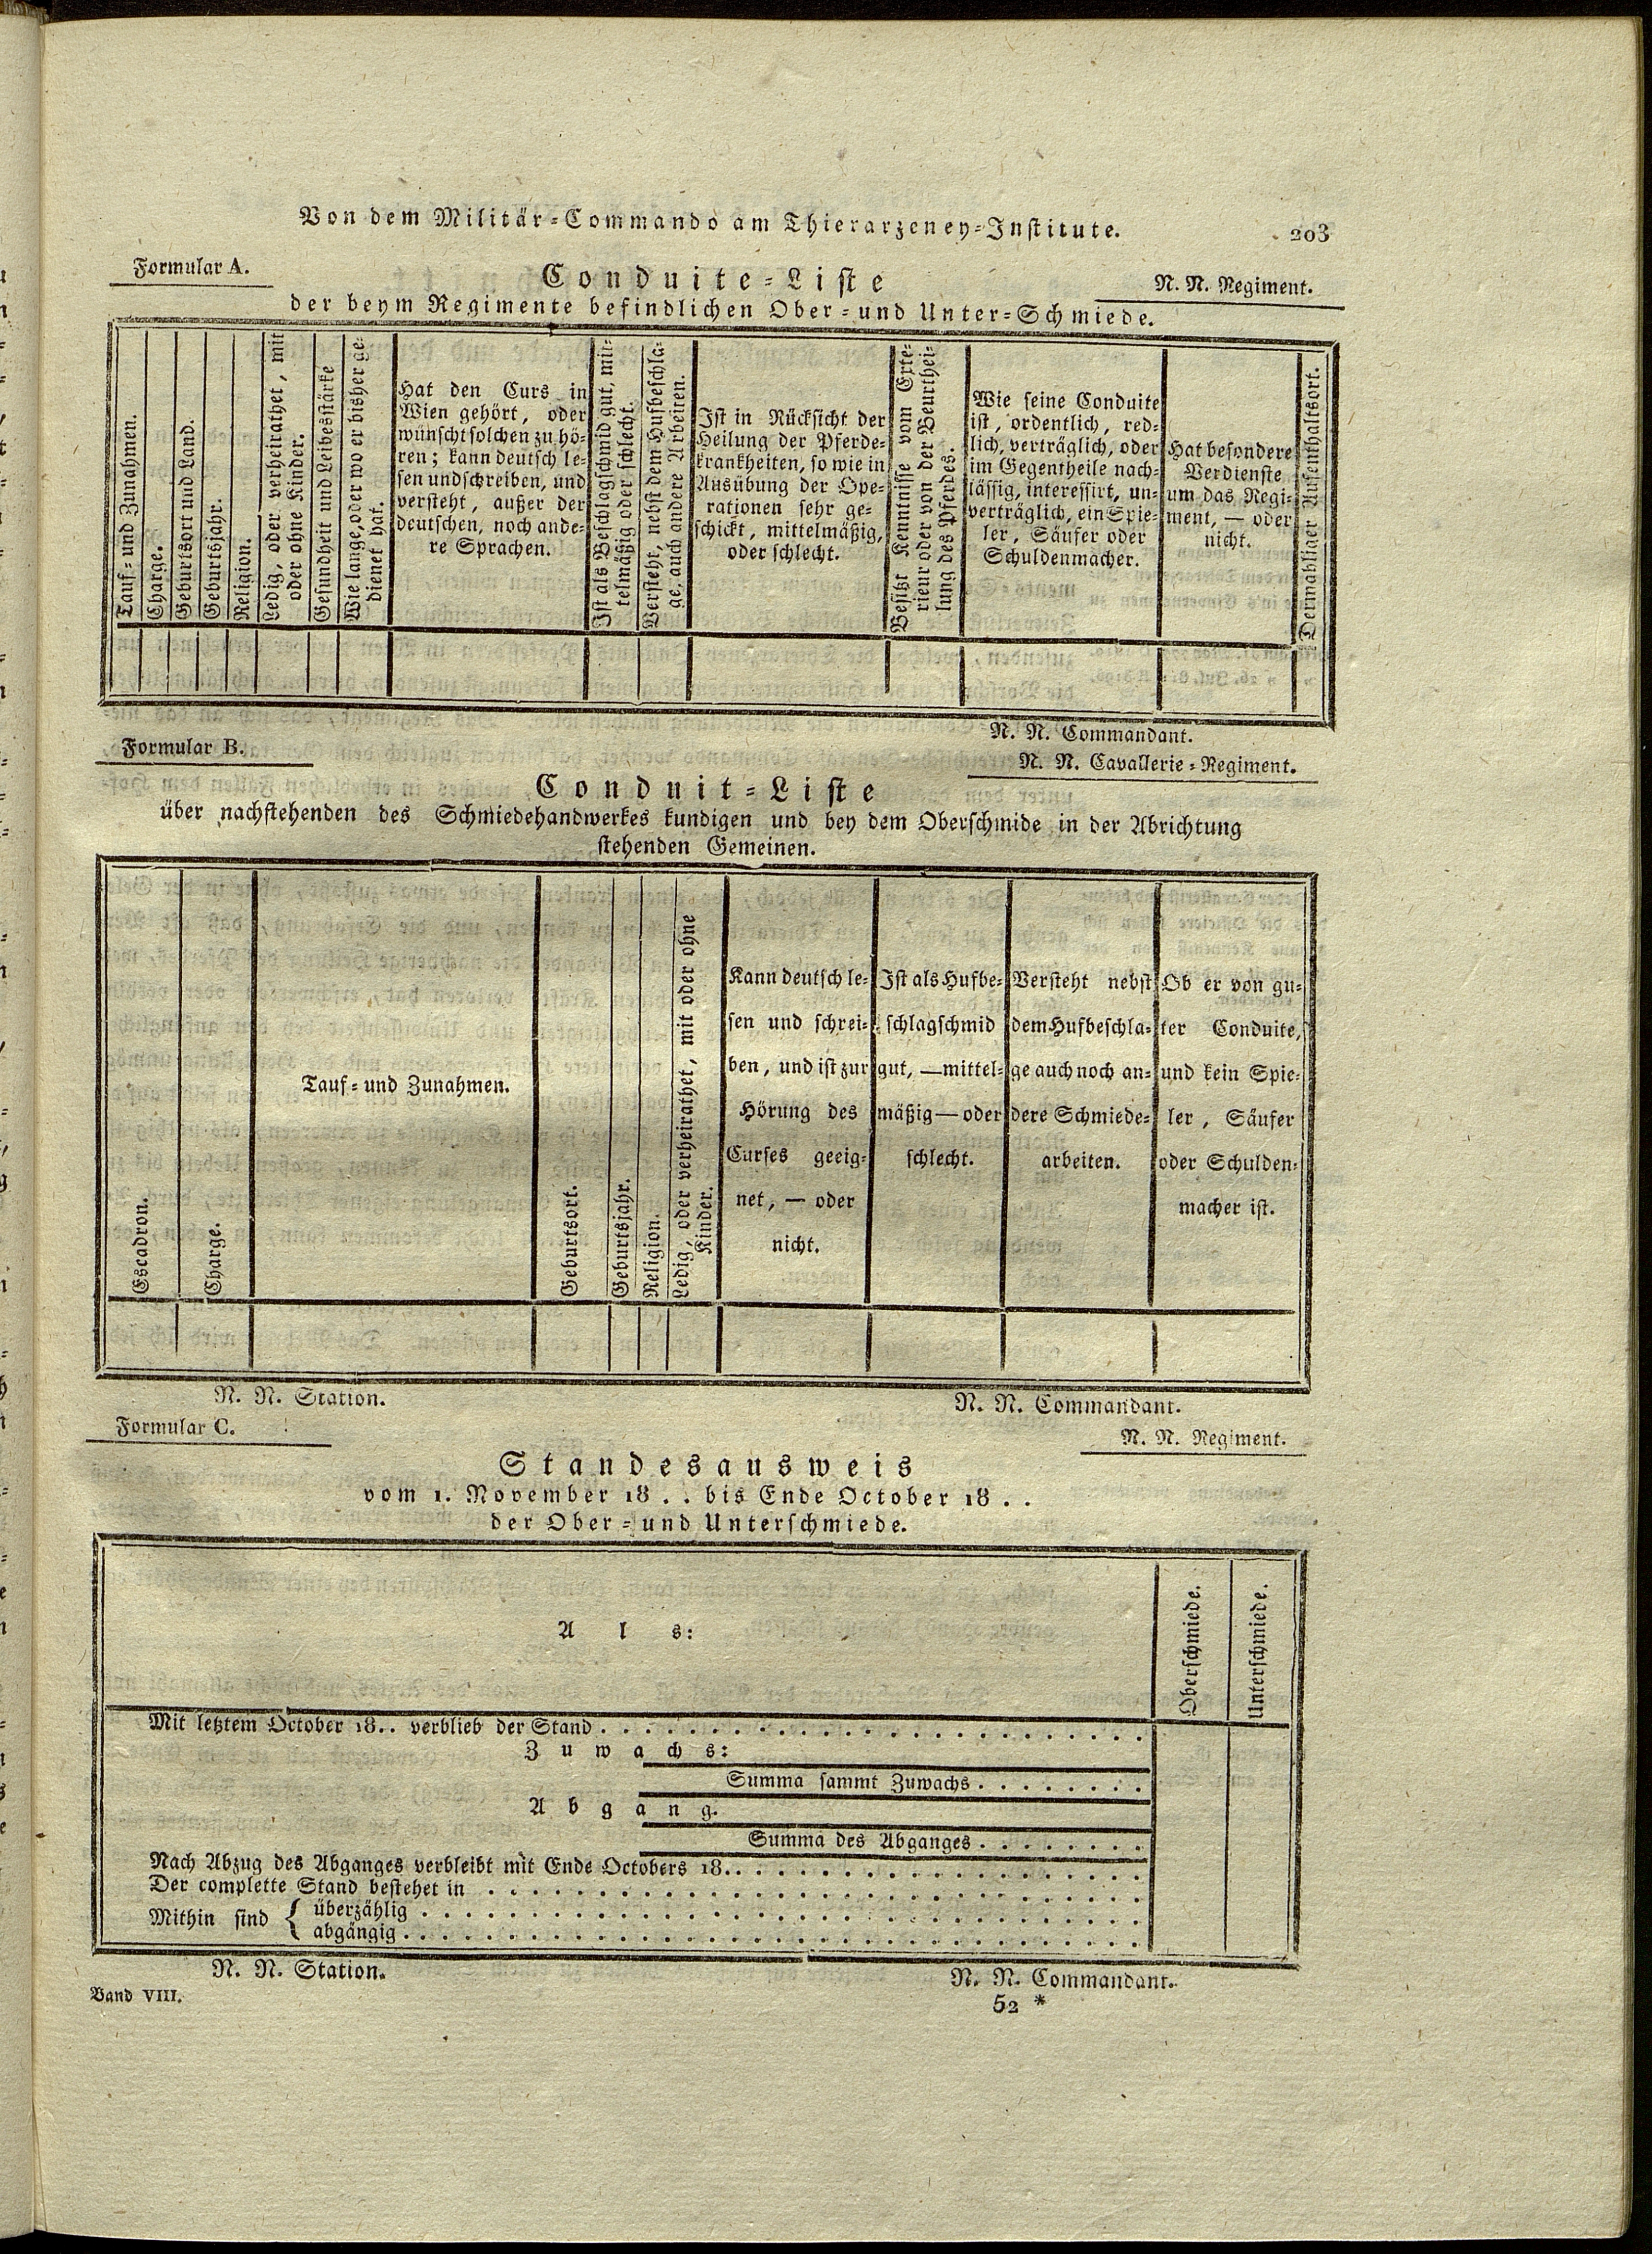 Von dem Militär-Commando am Thierarzeney-Institute.
203
Formular A.
Conduite-Liste
N. N. Regiment.
der beym Regimente befindlichen Ober- und Unter-Schmiede.
Tauf- und Zunahmen.
Charge.
Geburtsort und Land.
Geburtsjahr.
Religion.
Ledig, oder verheirathet, mit
oder ohne Kinder.
Gesundheit und Leibesstärke
Wie lange, oder wo er bisher ge-
dienet hat.
Hat den Curs in
Wien gehört, oder
wünscht solchen zu hö-
ren; kann deutsch le-
sen und schreiben, und
versteht, außer der
deutschen, noch ande-
re Sprachen.
Ist als Beschlagschmid gut, mit-
telmäßig oder schlecht.
Versteht, nebst dem Hufbeschla-
ge, auch andere Arbeiten.
Ist in Rücksicht der
Heilung der Pferde-
krankheiten, so wie in
Ausübung der Ope-
rationen sehr ge-
schickt, mittelmäßig,
oder schlecht.
Besitzt Kenntnisse vom Exte-
rieur oder von der Beurthei-
lung des Pferdes.
Wie seine Conduite
ist, ordentlich, red-
lich, verträglich, oder
im Gegentheile nach-
lässig, interessirt, un-
verträglich, ein Spie-
ler, Säufer oder
Schuldenmacher.
Hat besondere
Verdienste
um das Regi-
ment, — oder
nicht.
Dermahliger Aufenthaltsort.
N. N. Commandant.
Formular B.
N. N. Cavallerie-Regiment.
Conduit-Liste
über nachstehenden des Schmiedehandwerkes kundigen und bey dem Oberschmide in der Abrichtung
stehenden Gemeinen.
Escadron.
Charge.
Tauf- und Zunahmen.
Geburtsort.
Geburtsjahr.
Religion.
Ledig, oder verheirathet, mit oder ohne
Kinder.
Kann deutsch le-
sen und schrei-
ben, und ist zur
Hörung des
Curses geeig-
net, — oder
nicht.
Ist als Hufbe-
schlagschmid
gut, — mittel-
mäßig — oder
schlecht.
Versteht nebst
dem Hufbeschla-
ge auch noch an-
dere Schmiede-
arbeiten.
Ob er von gu-
ter Conduite,
und kein Spie-
ler, Säufer
oder Schulden-
macher ist.
N. N. Station.
N. N. Commandant.
Formular C.
N. N. Regiment.
Standesausweis
vom 1. November 18 . . bis Ende October 18 . .
der Ober- und Unterschmiede.
Als:
Oberschmiede.
Unterschmiede.
Mit letztem October 18.. verblieb der Stand . . . . . . . . . . . . . . . . . . . .
Zuwachs:
Summa sammt Zuwachs . . . . . . . .
Abgang.
Summa des Abganges . . . . . . . .
Nach Abzug des Abganges verbleibt mit Ende Octobers 18.. . . . . . . . . . . . . . . .
Der complette Stand bestehet in . . . . . . . . . . . . . . . . . . . . . . . .
Mithin sind { überzählig . . . . . . . . . . . . . . . . . . . . . . . . . .
abgängig . . . . . . . . . . . . . . . . . . . . . . . . . .
N. N. Station.
N. N. Commandant.
Band VIII.
52 *